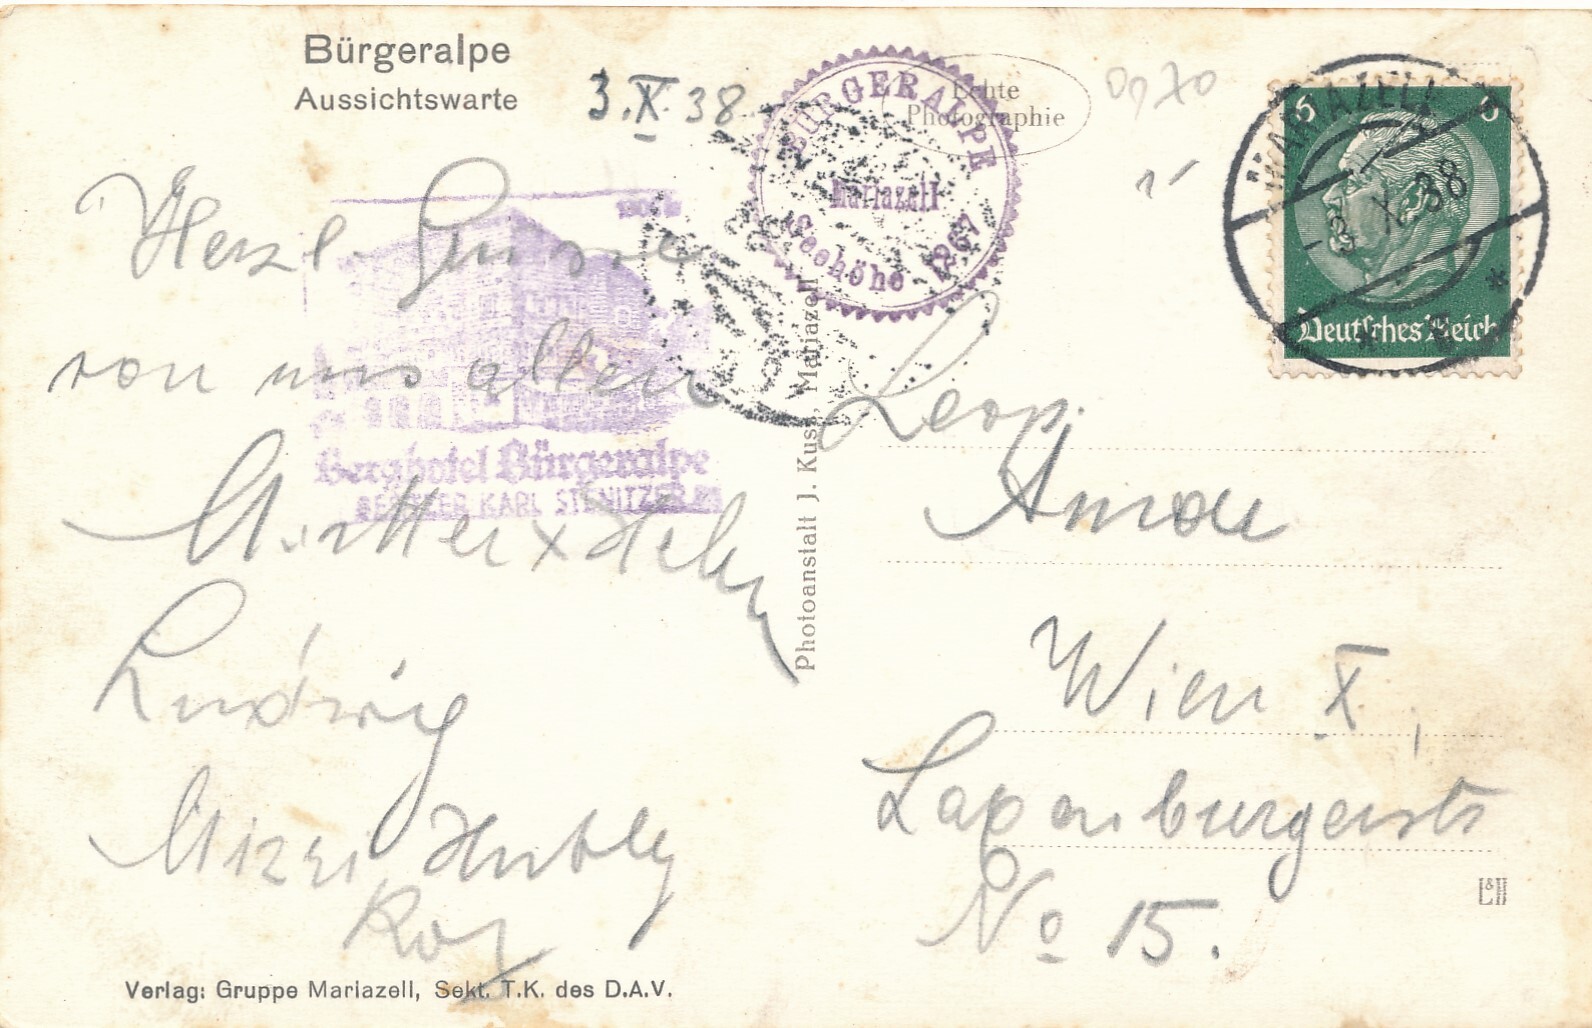 Bürgeralpe
Aussichtswarte
3.X.38
Herzl. Grüsse
von uns allen
Mutter x
Ludwig
Mizzi
BÜRGERALPE
Mariazell
Seehöhe 1267
Echte
Photographie
Berghotel Bürgeralpe
BESITZER KARL STENITZER
Photoanstalt J. Kuss, Mariazell
MARIAZELL
-3.X.38
6 6
Deutsches Reich
Leop.
Wien X,
Laxenburgerstr
No 15.
L&H
Verlag: Gruppe Mariazell, Sekt. T.K. des D.A.V.